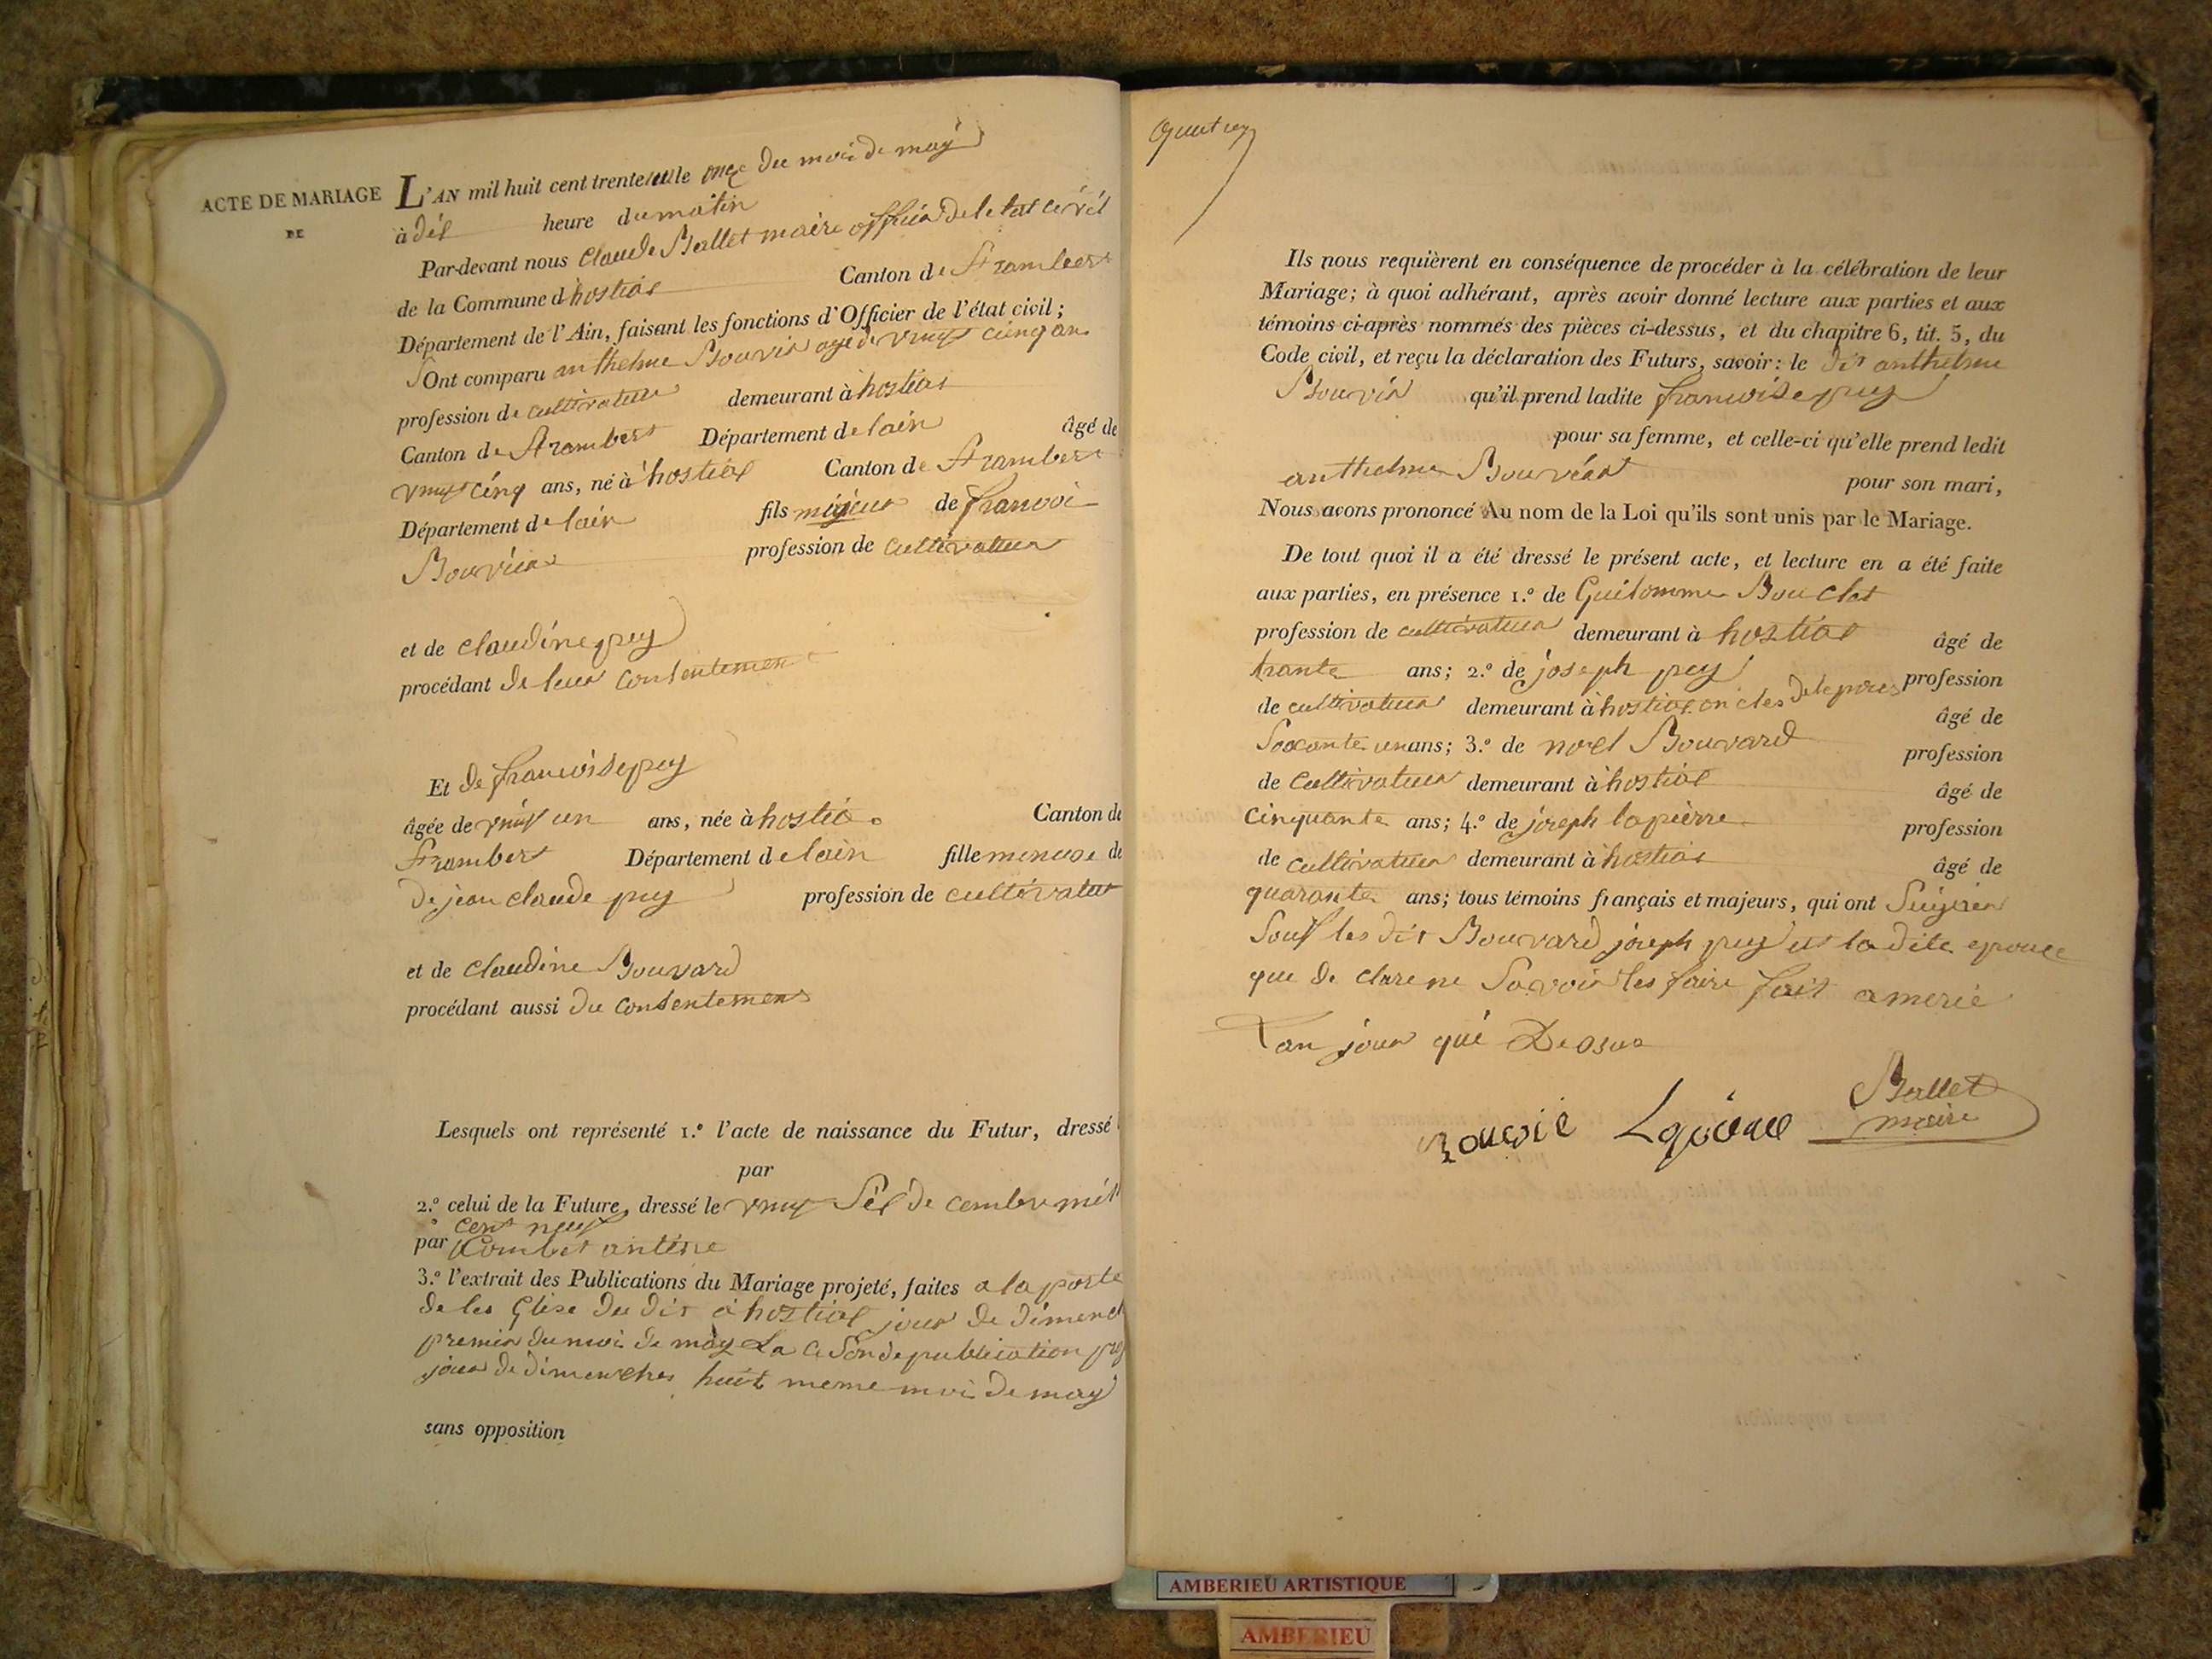 ACTE DE MARIAGE
DE
L'AN mil huit cent trente le onze du mois de may
à dél heure du matin
Par-devant nous Claude Ballet maire officié de letat civil
de la Commune d hostias Canton de St rambert
Département de l'Ain, faisant les fonctions d'Officier de l'état civil ;
SOnt comparu anthelme Bouvié agé de vingt cinq an
profession de cultivateur demeurant à hostias
Canton de St rambert Département de lain âgé de
vingt cinq ans, né à hostias Canton de St rambert
Département de lain fils majeur de francoi
Bouvier profession de cultivateur
et de claudine puy
procédant de leur consentement
Et de francoise puy
âgée de vingt un ans, née à hostia Canton de
St rambert Département de lain fille mineure de
De jean claude puy profession de cultivateur
et de claudine Bouvard
procédant aussi du consentement
Lesquels ont représenté 1.º l'acte de naissance du Futur, dressé
par
2.º celui de la Future, dressé le vingt Sis de cembre mil
cent neuf
par Combet antène
3.º l'extrait des Publications du Mariage projeté, faites a la porte
de les Glise du dit à hostias jour de dimench
premier du moi de may La Segonde publication
jour de dimenches huit meme moi de may
sans opposition
Ils nous requièrent en conséquence de procéder à la célébration de leur
Mariage ; à quoi adhérant, après avoir donné lecture aux parties et aux
témoins ci-après nommés des pièces ci-dessus, et du chapitre 6, tit. 5, du
Code civil, et reçu la déclaration des Futurs, savoir : le dit anthelme
Bouvié qu'il prend ladite francoise puy
pour sa femme, et celle-ci qu'elle prend ledit
anthelme Bouviér pour son mari,
Nous avons prononcé Au nom de la Loi qu'ils sont unis par le Mariage.
De tout quoi il a été dressé le présent acte, et lecture en a été faite
aux parties, en présence 1.º de Guilomme Bouclet
profession de cultivateur demeurant à hostias âgé de
trante ans ; 2.º de joseph puy profession
de cultivateur demeurant à hostias oncles de lepouse âgé de
Soocante un ans ; 3.º de noel Bouvard profession
de cultivateur demeurant à hostias âgé de
cinquante ans ; 4.º de joseph lapierre profession
de cultivateur demeurant à hostias âgé de
quarante ans ; tous témoins français et majeurs, qui ont
Souf les dit Bouvard joseph puy et la dite epouce
que de clare ne Savoir les faire fait a merie
Lan jour que Desus
Bouvié Lapierre Ballet
maire
AMBERIEU ARTISTIQUE
AMBERIEU